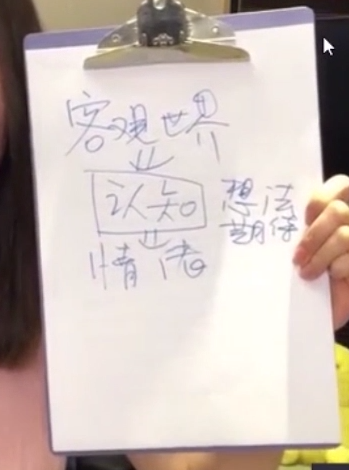 客观世界
↓
认知 想法
期待
情绪